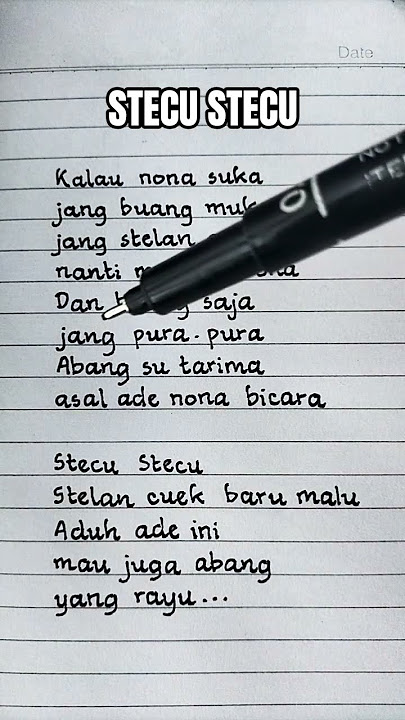 Date
STECU STECU
Kalau nona suka
jang buang
jang stelan
nanti
Dan saja
jang pura-pura
Abang su tarima
asal ade nona bicara
Stecu Stecu
Stelan cuek baru malu
Aduh ade ini
mau juga abang
yang rayu...